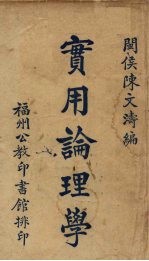 閩侯陳文濤編
實用論理學
福州公教印書館排印